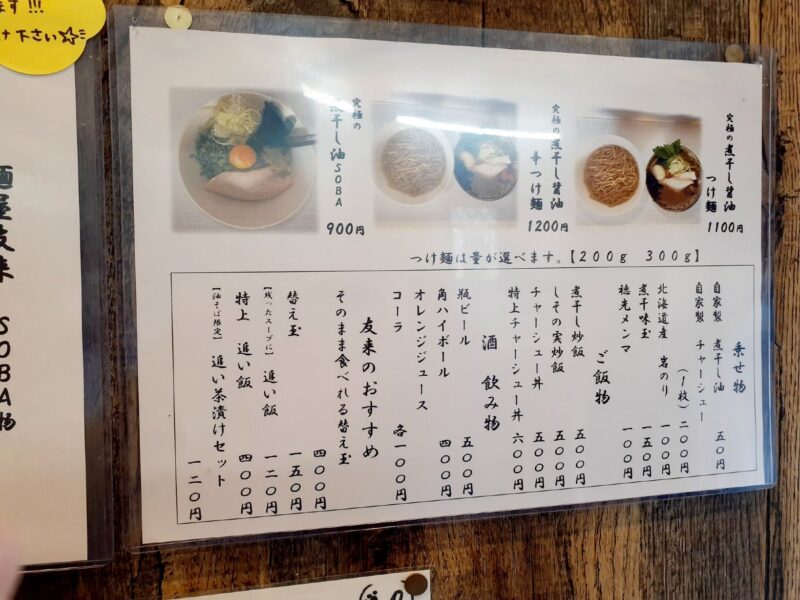 ます!!!
け下さい☆
究極の煮干し醤油
つけ麺
1100円
究極の煮干し醤油
辛つけ麺
1200円
究極の
煮干し油SOBA
900円
つけ麺は量が選べます。【200g 300g】
乗せ物
自家製 煮干し油 五〇円
自家製 チャーシュー
(1枚) 二〇〇円
北海道産 岩のり 一〇〇円
煮干味玉 一五〇円
穂先メンマ 一〇〇円
ご飯物
煮干し炒飯 五〇〇円
しその実炒飯 五〇〇円
チャーシュー丼 五〇〇円
特上チャーシュー丼 六〇〇円
酒 飲み物
瓶ビール 五〇〇円
角ハイボール 四〇〇円
オレンジジュース
コーラ 各一〇〇円
友来のおすすめ
そのまま食べれる替え玉 四〇〇円
替え玉 一五〇円
【残ったスープに】追い飯 一二〇円
特上 追い飯 四〇〇円
【油そば限定】追い茶漬けセット 一二〇円
麺屋友来 SOBA物